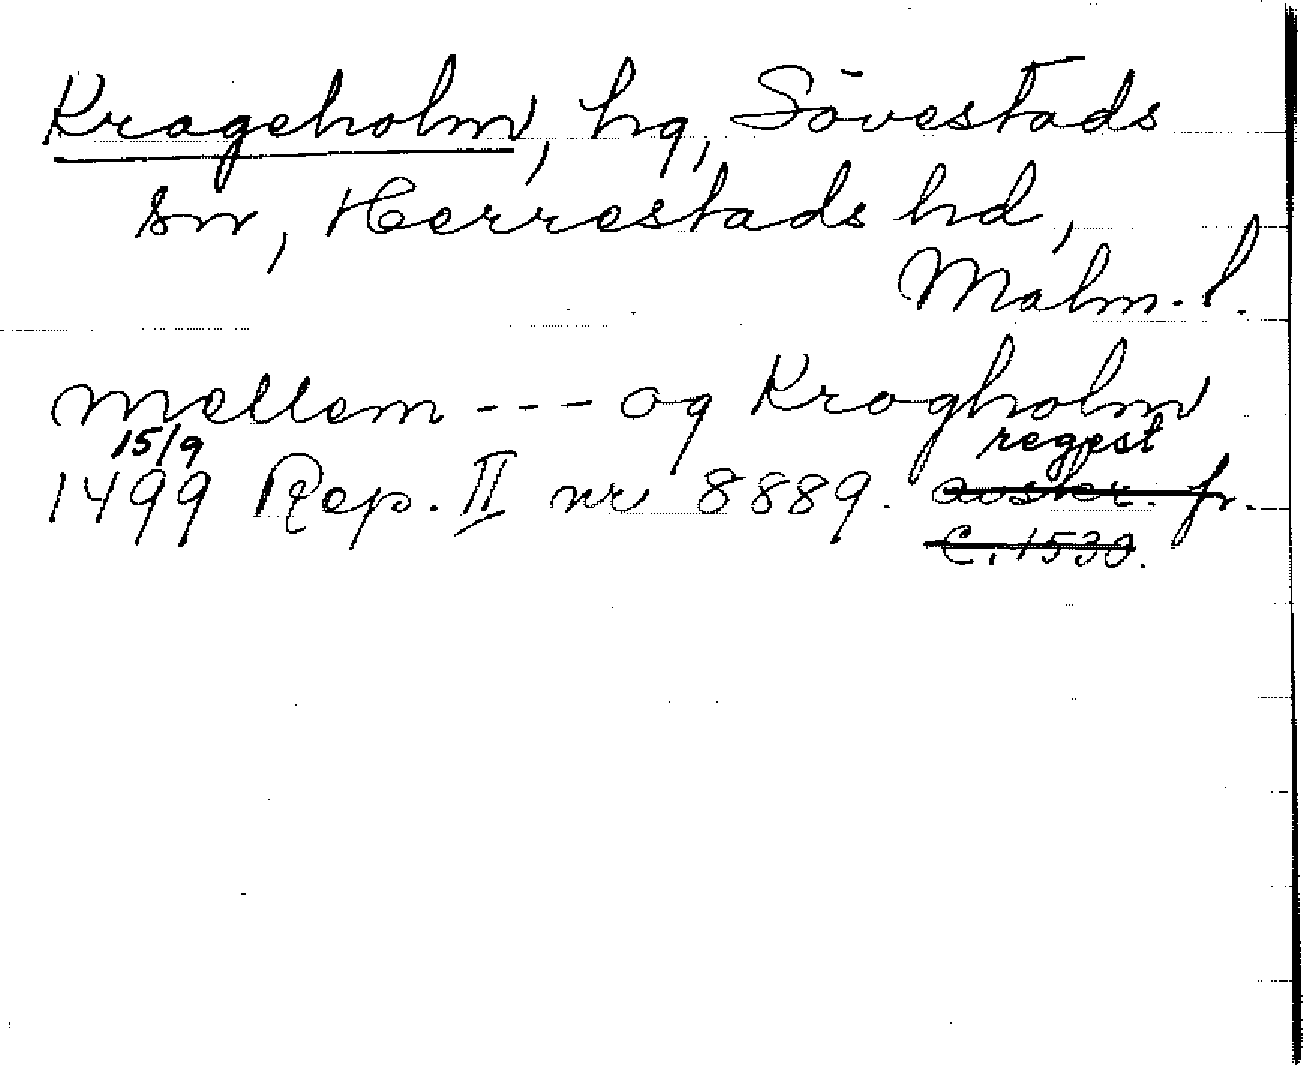 Krageholm, hg, Sövestads
sn, Herrestads hd,
Malm. l.
mellem --- og Krogholm
15/9 regest
1499 Rep. II nr 8889. avskr. fr.
c. 1530.